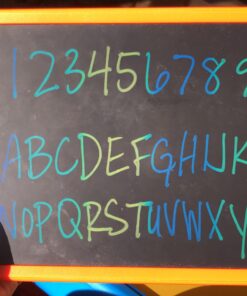 123456789
ABCDEFGHIJK
NOPQRSTUVWXY